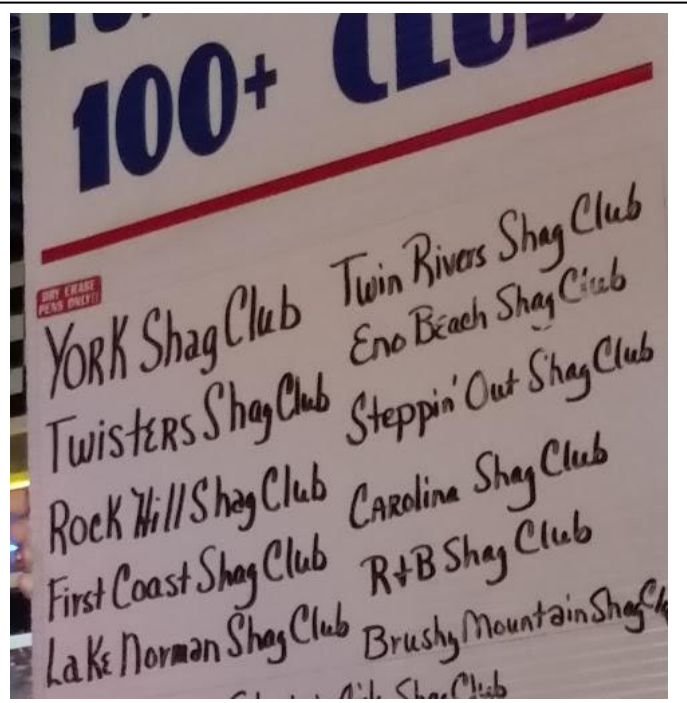 100+ CLUB
DRY ERASE
PENS ONLY!!
YORK Shag Club
TwistERS Shag Club
Rock Hill Shag Club
First Coast Shag Club
LaKE Norman Shag Club
Twin Rivers Shag Club
Eno BEach Shag Club
Steppin' Out Shag Club
CARolina Shag Club
R+B Shag Club
Brushy Mountain Shag
Shag Club